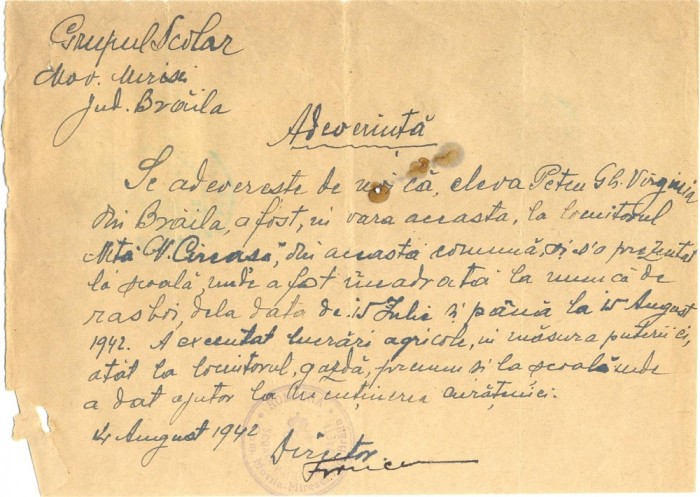 Grupul Scolar
Mov. Miresii
Jud. Brăila
Adeverință
Se adevereste de noi că, eleva Petcu Gh. Virginia
din Brăila, a fost, in vara aceasta, la locuitorul
Niță V. din această comună, si s'a prezentat
la școală, unde a fost încadrată la muncă de
rasboi, dela data de 15 Iulie și până la 15 August
1942. A executat lucrări agricole, in măsura puterii ei,
atât la locuitorul, gazdă, precum si la școală unde
a dat ajutor la menținerea curățeniei.
14 August 1942
Director
ROMÂNIA